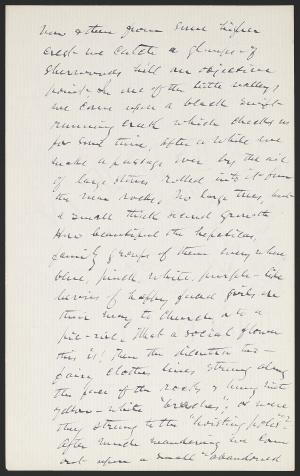 Now & then from some higher
crest we catch a glimpse of
Sherwoods hill our objective
point. In one of the little valleys,
we come upon a black swift
running creek which checks us
for some time, after a while we
make a passage over by the aid
of large stones rolled into it from
the near rocks. No large trees, but
a small thick second growth
How beautiful the hepaticas,
family groups of them everywhere,
blue, pink, white, purple - like
bevies of happy, good girls on
their way to church, or to a
pic-nic. What a social flower
this is! Then the dicentra too -
fairy clothes lines strung along
the face of the rocks & hung with
yellow-white "breeches", or were
they strung to the "hoisting poles".
After much meandering we come
out upon a small "abandoned